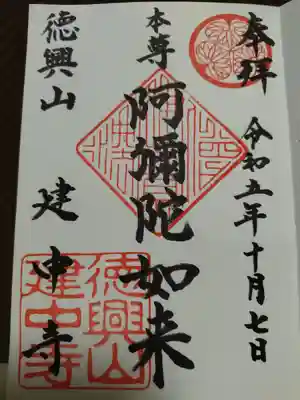 奉拝
令和五年十月七日
本尊
阿彌陀如来
徳興山
建中寺
徳興山
建中寺